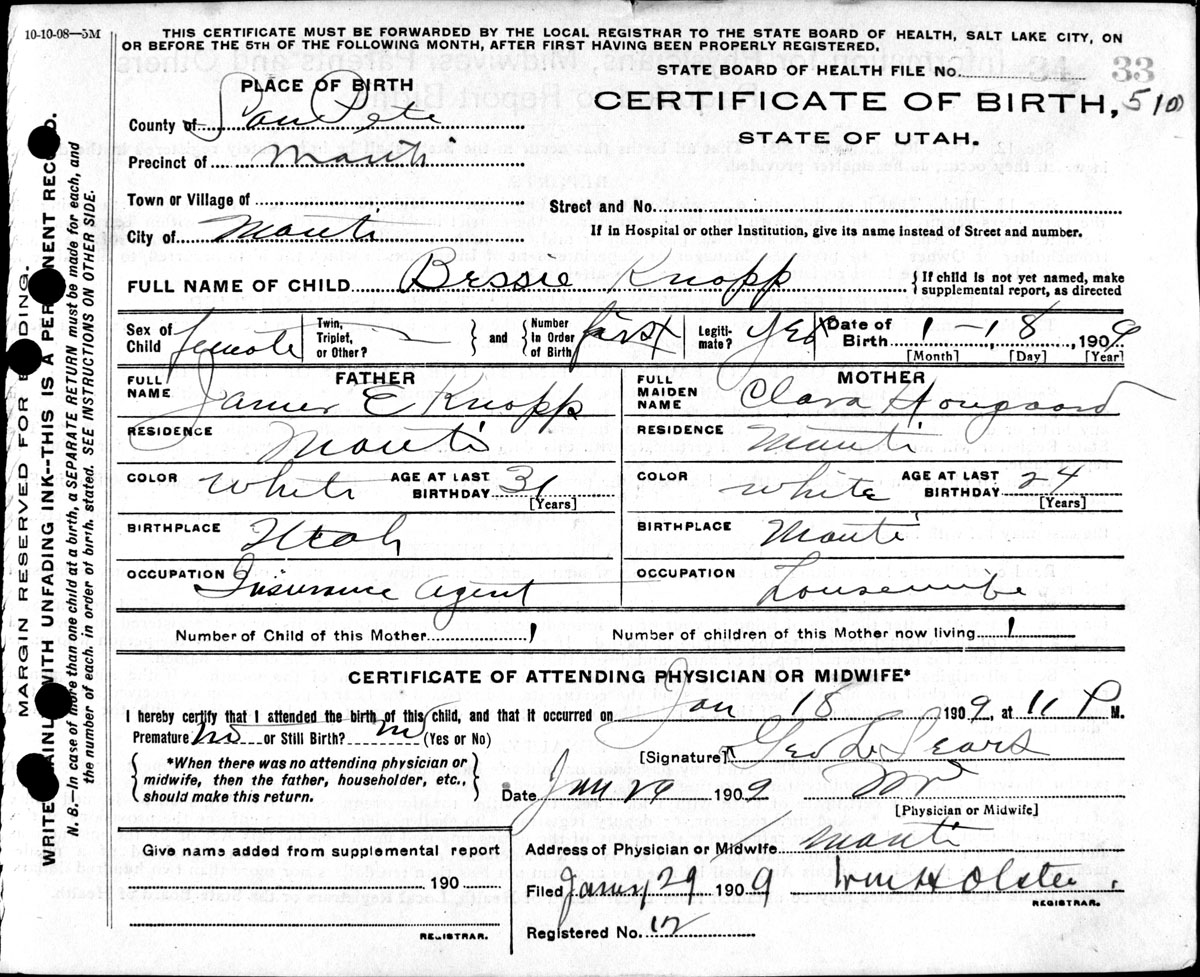 10-10-08—5M
THIS CERTIFICATE MUST BE FORWARDED BY THE LOCAL REGISTRAR TO THE STATE BOARD OF HEALTH, SALT LAKE CITY, ON
OR BEFORE THE 5TH OF THE FOLLOWING MONTH, AFTER FIRST HAVING BEEN PROPERLY REGISTERED.
PLACE OF BIRTH
STATE BOARD OF HEALTH FILE No. 34 33
CERTIFICATE OF BIRTH, 510
STATE OF UTAH.
County of San Pete
Precinct of Manti
Town or Village of
Street and No.
City of Manti
If in Hospital or other Institution, give its name instead of Street and number.
FULL NAME OF CHILD Bessie Knopp { If child is not yet named, make supplemental report, as directed
Sex of Child female Twin, Triplet, or Other? — } and { Number In Order of Birth first Legitimate? Yes Date of Birth 1—18, 1909
[Month] [Day] [Year]
FATHER
MOTHER
FULL NAME James E Knopp
FULL MAIDEN NAME Clara Hougaard
RESIDENCE Manti
RESIDENCE Manti
COLOR White AGE AT LAST BIRTHDAY 31 [Years]
COLOR White AGE AT LAST BIRTHDAY 24 [Years]
BIRTHPLACE Utah
BIRTHPLACE Manti
OCCUPATION Insurance Agent
OCCUPATION Housewife
Number of Child of this Mother 1
Number of children of this Mother now living 1
CERTIFICATE OF ATTENDING PHYSICIAN OR MIDWIFE*
I hereby certify that I attended the birth of this child, and that it occurred on Jan 18 1909, at 11 P M.
Premature No or Still Birth? no (Yes or No)
[Signature] Geo L Sears
{ *When there was no attending physician or midwife, then the father, householder, etc., should make this return. }
Date Jan 29 1909
[Physician or Midwife]
Give name added from supplemental report
Address of Physician or Midwife Manti
190
Filed Jany 29 1909
REGISTRAR.
REGISTRAR.
Registered No. 12
MARGIN RESERVED FOR BINDING.
WRITE PLAINLY WITH UNFADING INK--THIS IS A PERMANENT RECORD.
N. B.—In case of more than one child at a birth, a SEPARATE RETURN must be made for each, and
the number of each, in order of birth, stated. SEE INSTRUCTIONS ON OTHER SIDE.